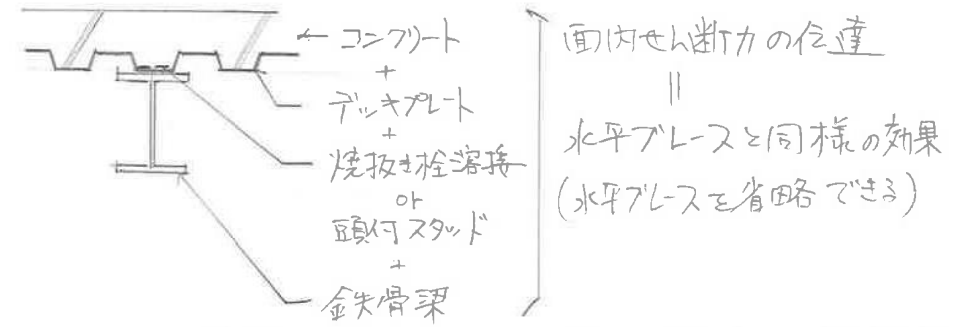 コンクリート
+
デッキプレート
+
焼抜き栓溶接
or
頭付スタッド
+
鉄骨梁
面内せん断力の伝達
=
水平ブレースと同様の効果
(水平ブレースを省略できる)